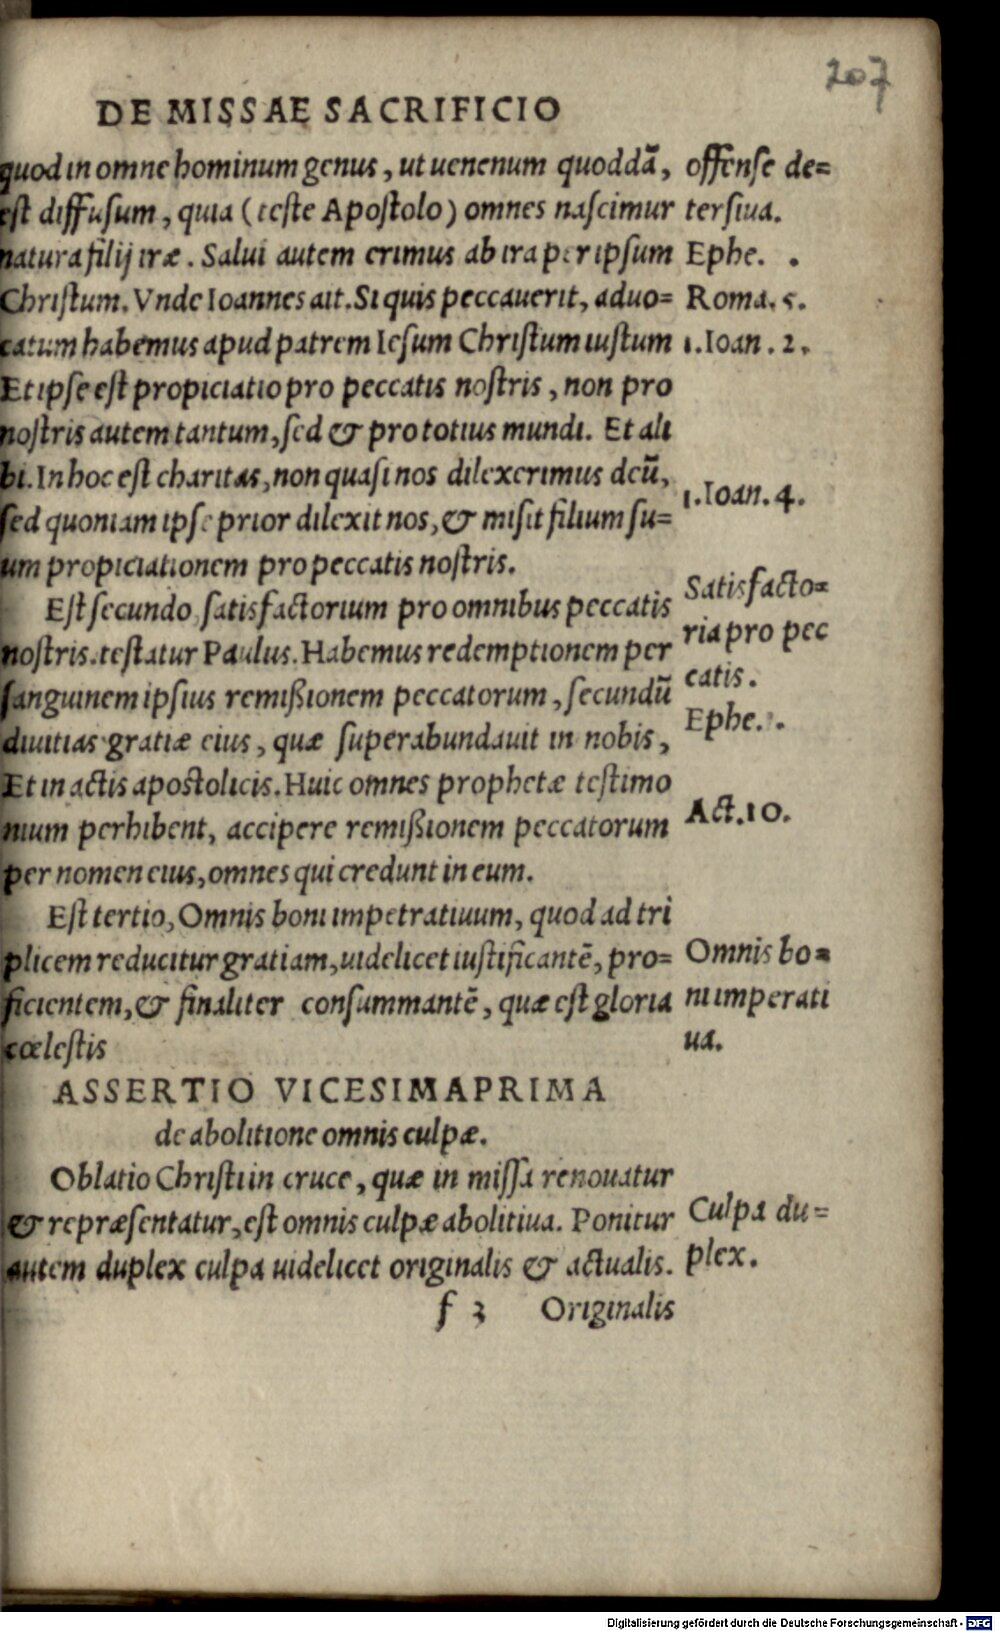 207
DE MISSAE SACRIFICIO
quod in omne hominum genus, ut uenenum quoddā,
est diffusum, quia (teste Apostolo) omnes nascimur
natura filij iræ. Salui autem erimus ab ira per ipsum
Christum. Vnde Ioannes ait. Si quis peccauerit, aduo=
catum habemus apud patrem Iesum Christum iustum
Et ipse est propiciatio pro peccatis nostris, non pro
nostris autem tantum, sed & pro totius mundi. Et ali
bi. In hoc est charitas, non quasi nos dilexerimus deū,
sed quoniam ipse prior dilexit nos, & misit filium su=
um propiciationem pro peccatis nostris.
Est secundo satisfactorium pro omnibus peccatis
nostris. testatur Paulus. Habemus redemptionem per
sanguinem ipsius remißionem peccatorum, secundū
diuitias gratiæ eius, quæ superabundauit in nobis,
Et in actis apostolicis. Huic omnes prophetæ testimo
nium perhibent, accipere remißionem peccatorum
per nomen eius, omnes qui credunt in eum.
Est tertio, Omnis boni impetratiuum, quod ad tri
plicem reducitur gratiam, uidelicet iustificantē, pro=
ficientem, & finaliter consummantē, quæ est gloria
cœlestis
ASSERTIO VICESIMAPRIMA
de abolitione omnis culpæ.
Oblatio Christi in cruce, quæ in missa renouatur
& repræsentatur, est omnis culpæ abolitiua. Ponitur
autem duplex culpa uidelicet originalis & actualis.
f 3 Originalis
offense de=
tersiua.
Ephe. .
Roma. 5.
1. Ioan. 2.
1. Ioan. 4.
Satisfacto=
ria pro pec
catis.
Ephe. .
Act. 10.
Omnis bo=
ni imperati
ua.
Culpa du=
plex.
Digitalisierung gefördert durch die Deutsche Forschungsgemeinschaft - DFG